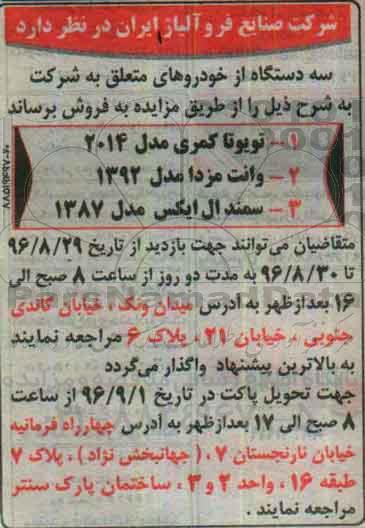 شرکت صنایع فروآلیاژ ایران در نظر دارد
سه دستگاه از خودروهای متعلق به شرکت
به شرح ذیل را از طریق مزایده به فروش برساند
۱ – تویوتا کمری مدل ۲۰۱۴
۲ – وانت مزدا مدل ۱۳۹۲
۳ – سمند ال ایکس مدل ۱۳۸۷
متقاضیان می توانند جهت بازدید از تاریخ ۹۶/۸/۲۹
تا ۹۶/۸/۳۰ به مدت دو روز از ساعت ۸ صبح الی
۱۶ بعدازظهر به آدرس میدان ونک ، خیابان گاندی
جنوبی ، خیابان ۲۱ ، پلاک ۶ مراجعه نمایند
به بالاترین پیشنهاد واگذار می‌گردد
جهت تحویل پاکت در تاریخ ۹۶/۹/۱ از ساعت
۸ صبح الی ۱۷ بعدازظهر به آدرس چهارراه فرمانیه
خیابان نارنجستان ۷ ، ( جهانبخش نژاد ) ، پلاک ۷
طبقه ۱۶ ، واحد ۲ و ۳ ، ساختمان پارک سنتر
مراجعه نمایند .